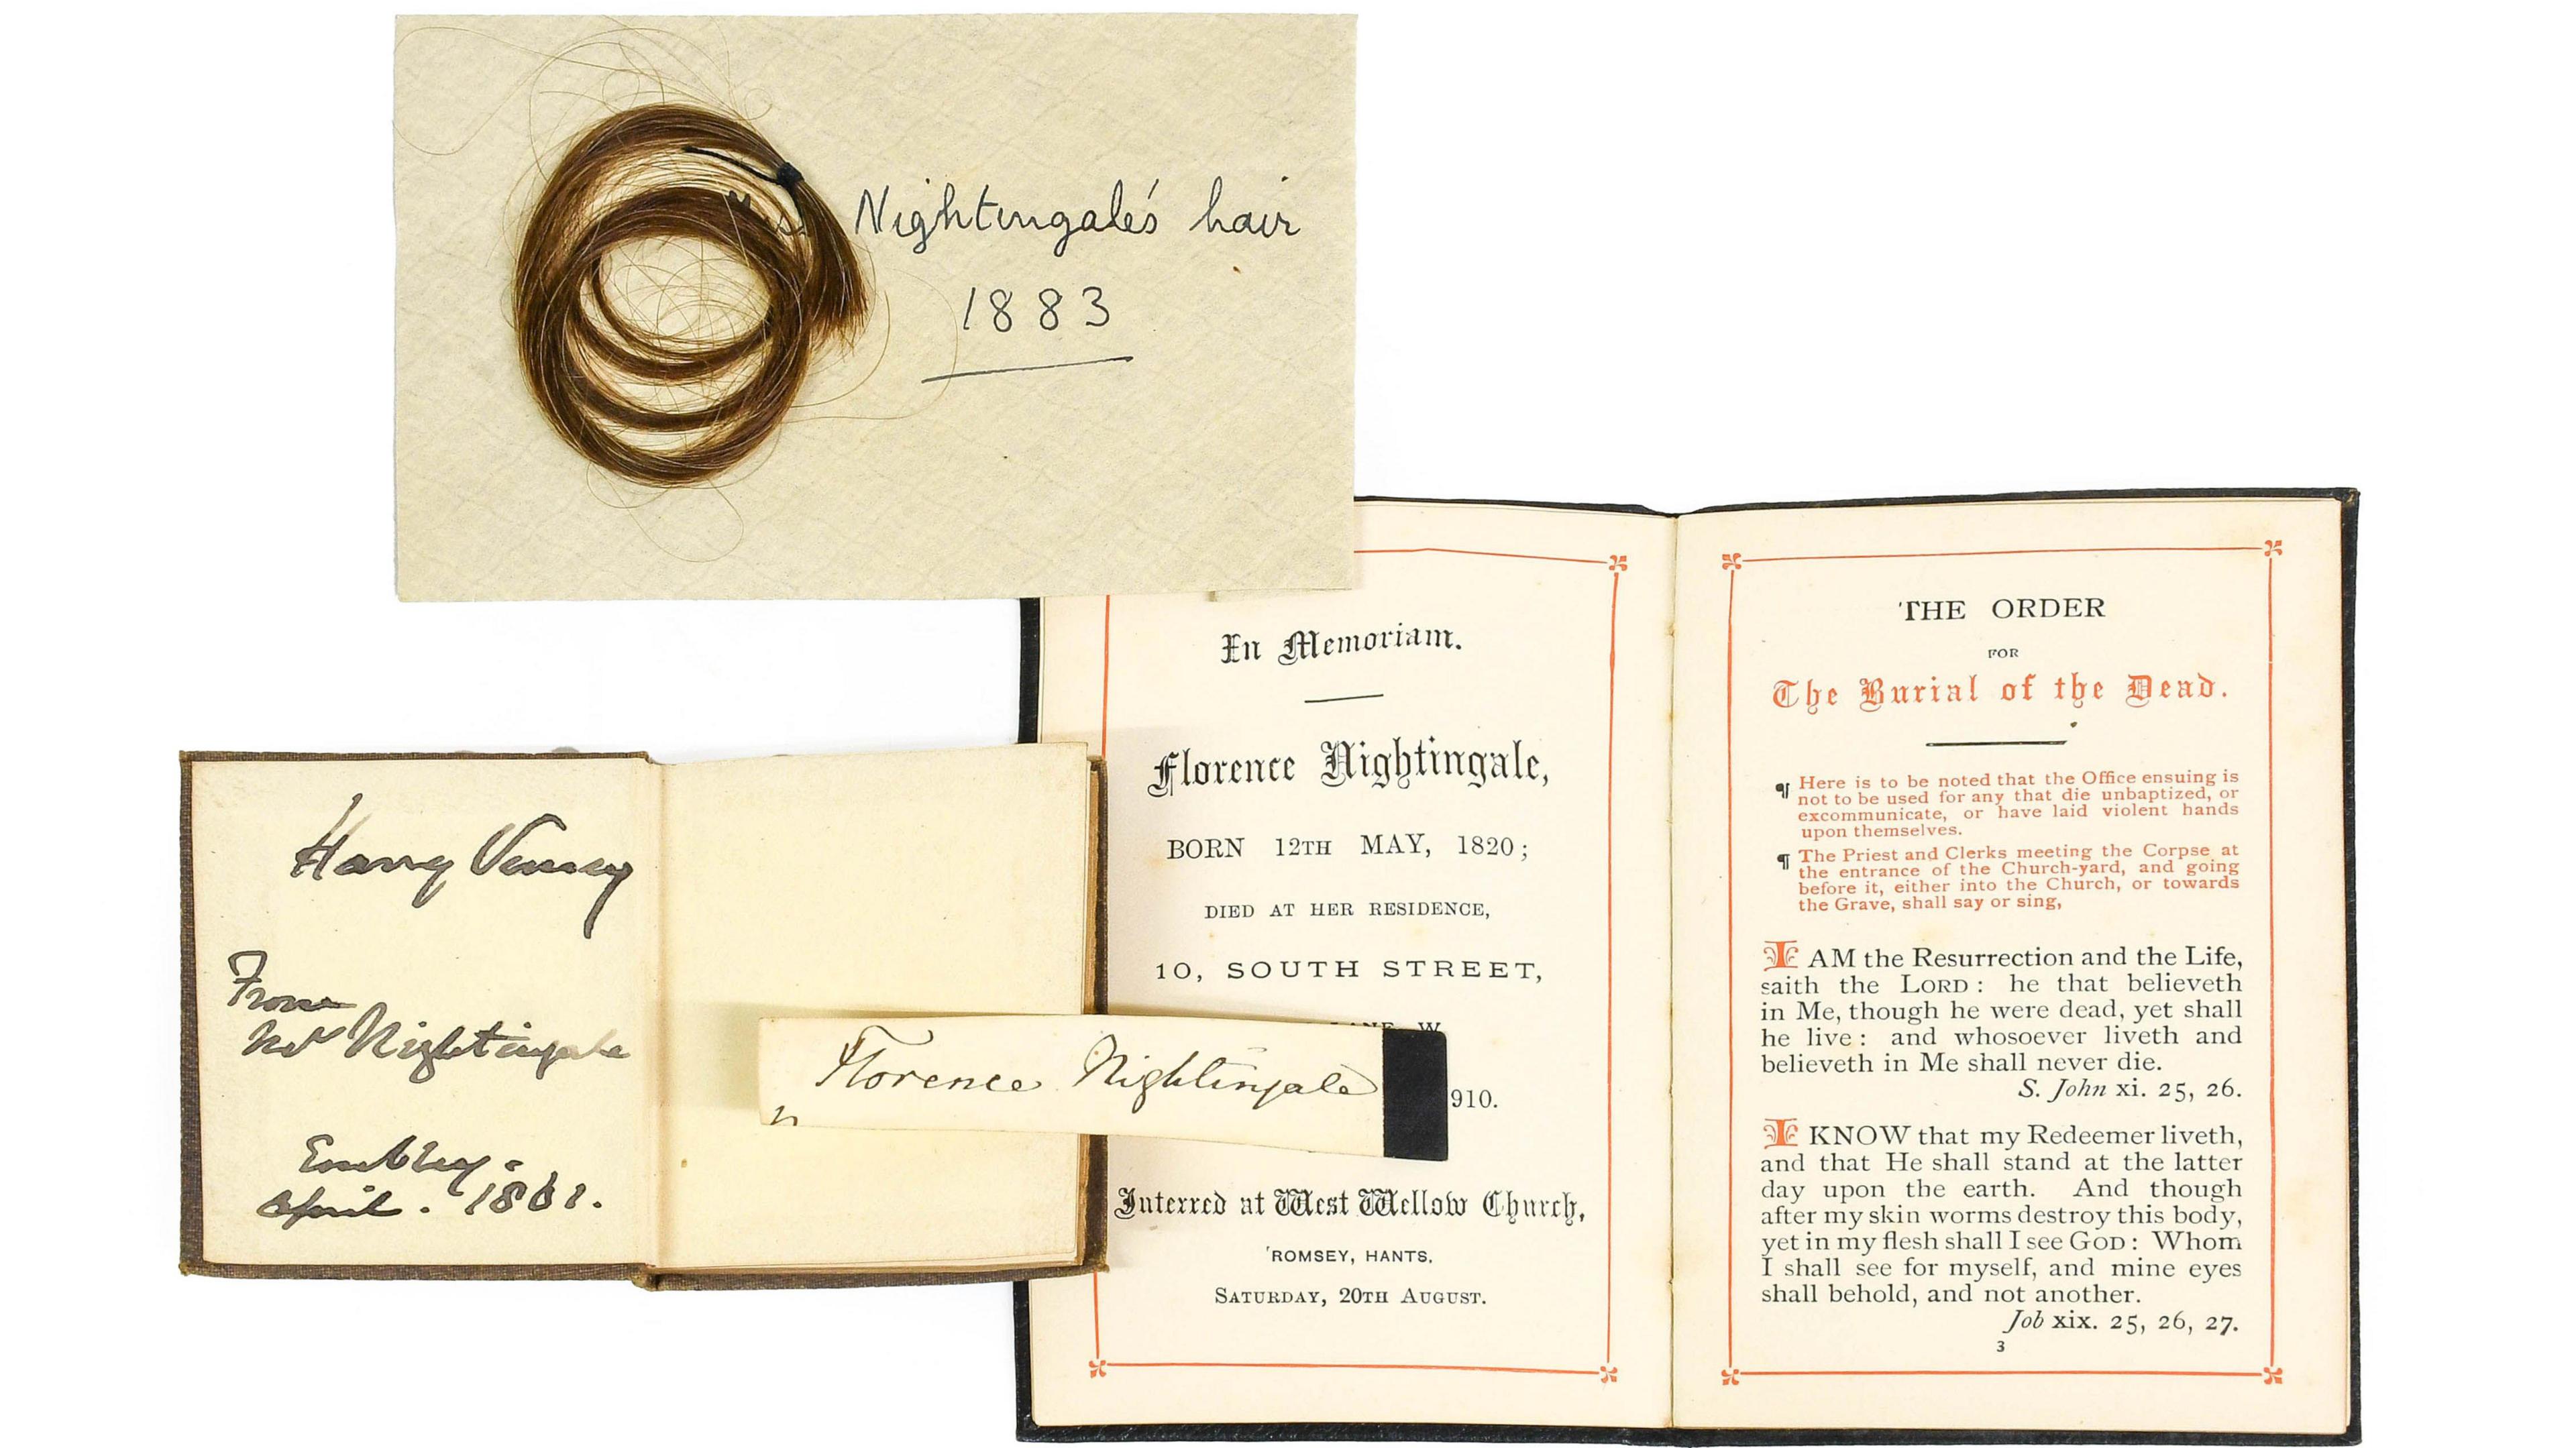 Nightingale's hair
1883
In Memoriam.
Florence Nightingale,
BORN 12TH MAY, 1820;
DIED AT HER RESIDENCE,
10, SOUTH STREET,
LANE W
910.
Interred at West Wellow Church,
ROMSEY, HANTS,
SATURDAY, 20TH AUGUST.
THE ORDER
FOR
The Burial of the Dead.
¶ Here is to be noted that the Office ensuing is
not to be used for any that die unbaptized, or
excommunicate, or have laid violent hands
upon themselves.
¶ The Priest and Clerks meeting the Corpse at
the entrance of the Church-yard, and going
before it, either into the Church, or towards
the Grave, shall say or sing,
I AM the Resurrection and the Life,
saith the LORD: he that believeth
in Me, though he were dead, yet shall
he live: and whosoever liveth and
believeth in Me shall never die.
S. John xi. 25, 26.
I KNOW that my Redeemer liveth,
and that He shall stand at the latter
day upon the earth. And though
after my skin worms destroy this body,
yet in my flesh shall I see GOD: Whom
I shall see for myself, and mine eyes
shall behold, and not another.
Job xix. 25, 26, 27.
3
Harry Verney
From
Nightingale
Embley.
April. 1861.
Florence Nightingale